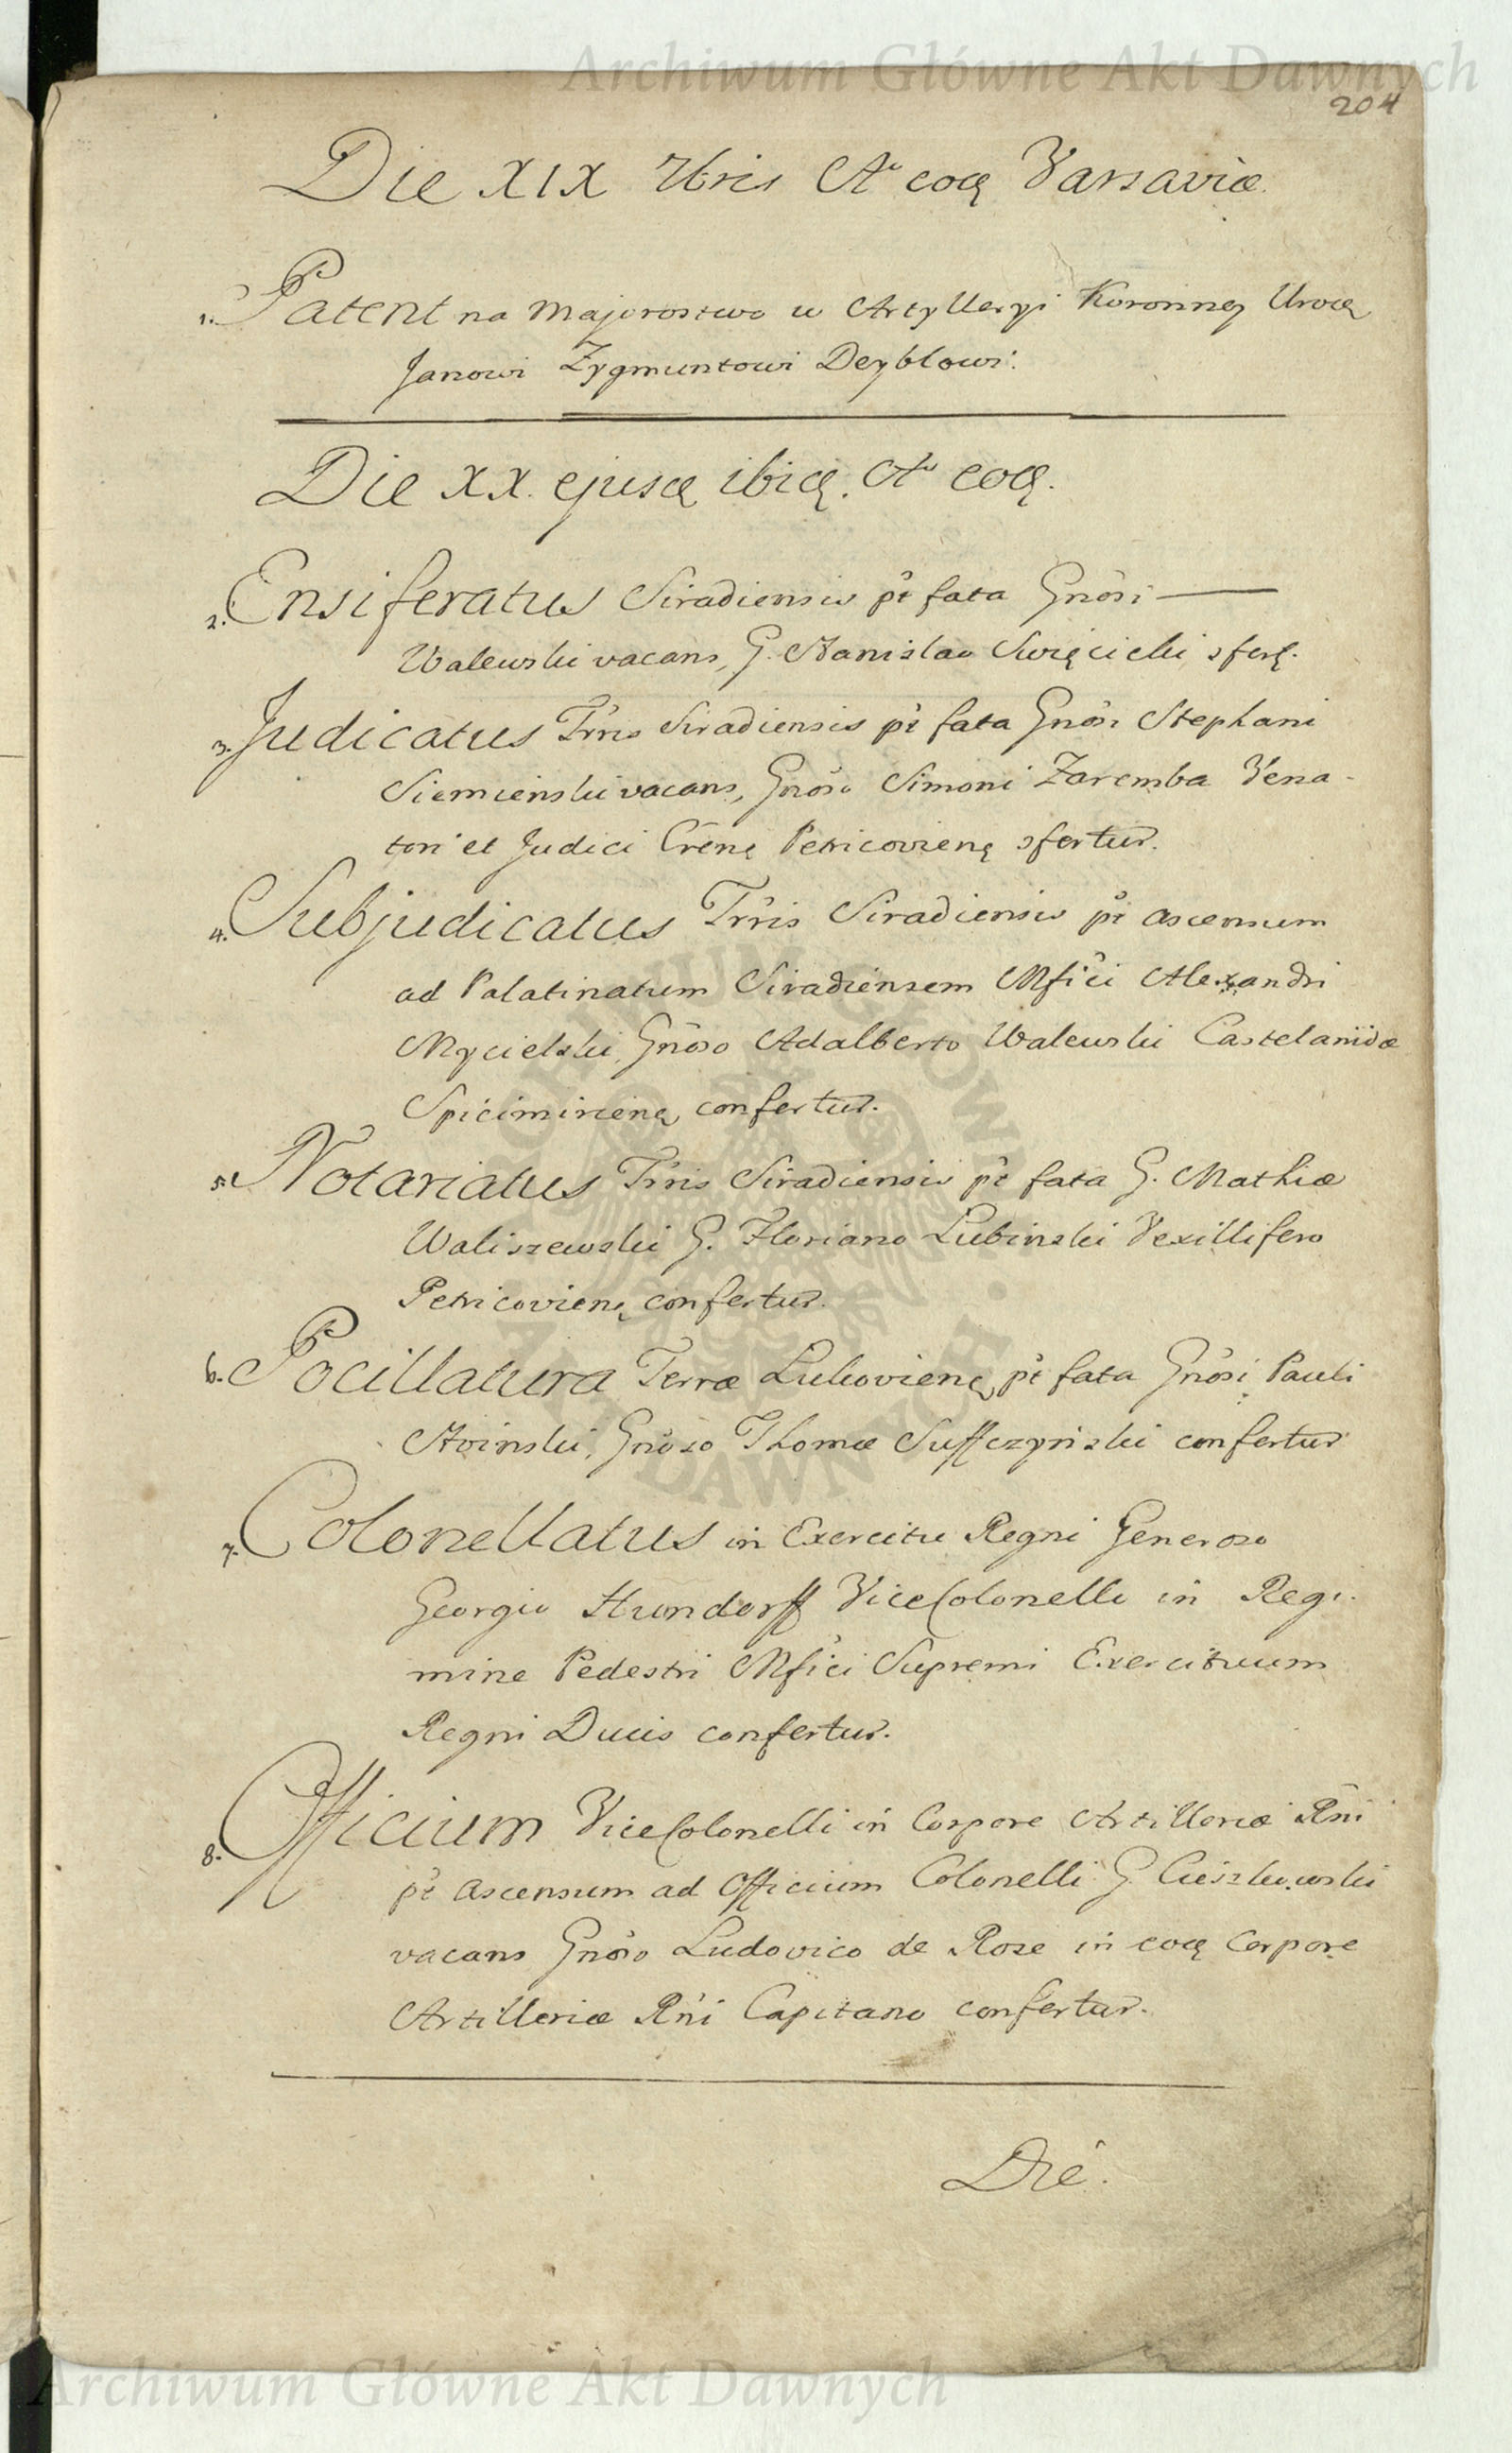 Archiwum Główne Akt Dawnych
204
Die XIX 7bris Aº eoq Varsaviæ.
1. Patent na Majorostwo w Artylleryi Koronneÿ Uroq
Janowi Zygmuntowi Deyblowi.
Die XX. ejusq ibiq. Aº eoq.
2. Ensiferatus Siradiensis pt fata Gnosi —
Walewski vacans, G. Stanislao Swięcicki, ɔferꝗ.
3. Judicatus Trris Siradiensis pt fata Gnosi Stephani
Siemienski vacans, Gnoso Simoni Zaremba Vena-
tori et Judici Crenꝗ Petricovienꝗ ɔfertur.
4. Subjudicatus Trris Siradiensis pt ascensum
ad Palatinatum Siradiensem Mfici Alexandri
Mycielski, Gnoso Adalberto Walewski Castelanidæ
Spicimirienꝗ confertur.
5. Notariatus Trris Siradiensis pt fata G. Mathiæ
Waliszewski G. Floriano Lubinski Vexillifero
Petricovienꝗ confertur.
6. Pocillatura Terræ Lukovienꝗ pt fata Gnosi Pauli
Stoinski, Gnoso Thomæ Suffczynski confertur
7. Colonellatus in Exercitu Regni Generoso
Georgio Hundorff ViceColonello in Regi-
mine Pedestri Mfici Supremi Exercituum
Regni Ducis confertur.
8. Officium ViceColonelli in Corpore Artilleriæ Rni
pt ascensum ad Officium Colonelli G. Cieszkowski
vacans Gnoso Ludovico de Roze in eoq Corpore
Artilleriæ Rni Capitano confertur.
Die.
ARCHIWUM GŁÓWNE AKT DAWNYCH
Archiwum Główne Akt Dawnych